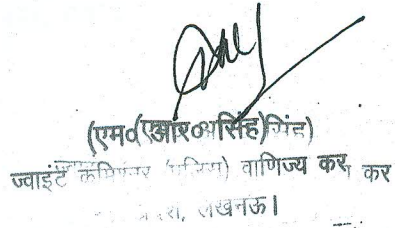 (एम०आर० सिंह)
ज्वाइंट कमिश्नर वाणिज्य कर
प्रदेश, लखनऊ।